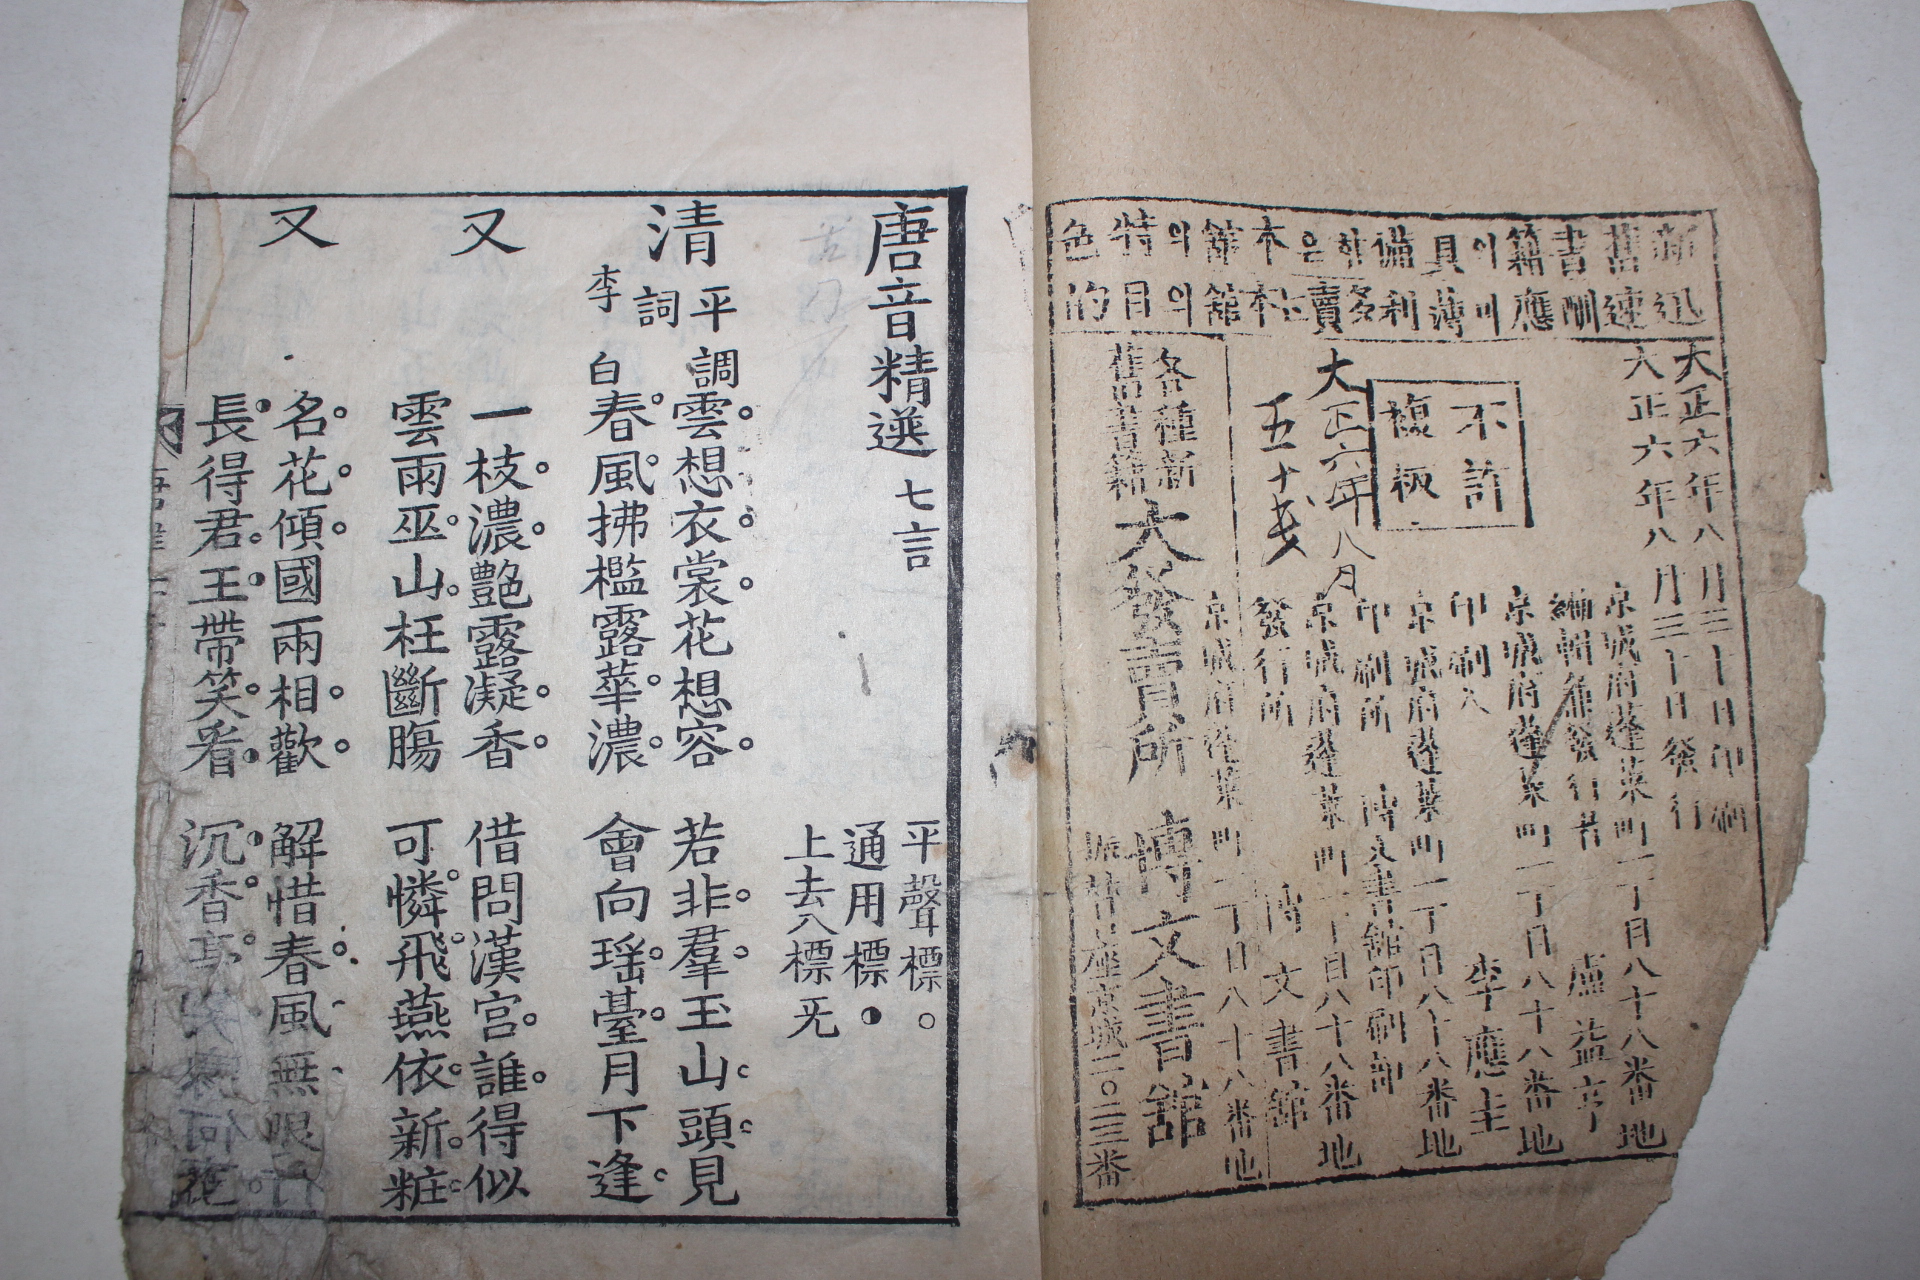 新舊書籍이具備하은本舘의特色
迅速酬應이며薄利多賣는本舘의의目的
大正六年八月三十日印刷
大正六年八月三十日發行
不許
複板
京城府蓬萊町一丁目八十八番地
編輯兼發行者 盧益亨
京城府蓬萊町一丁目八十八番地
印刷人 李應圭
京城府蓬萊町一丁目八十八番地
印刷所 博文書舘印刷部
大正六年八月
京城府蓬萊町一丁目八十八番地
五十戔
發行所 博文書舘
京城府蓬萊町一丁目八十八番地
各種新
舊書籍
大發賣所 博文書舘
振替口座京城二〇二三番
唐音精選 七言
平聲標○
通用標◑
上去入標无
清平調
詞
雲想衣裳花想容 若非羣玉山頭見
李白
春風拂檻露華濃 會向瑶臺月下逢
又
一枝濃艶露凝香 借問漢宮誰得似
雲雨巫山枉斷膓 可憐飛燕依新粧
又
名花傾國兩相歡 解惜春風無限
長得君王帶笑看 沉香亭